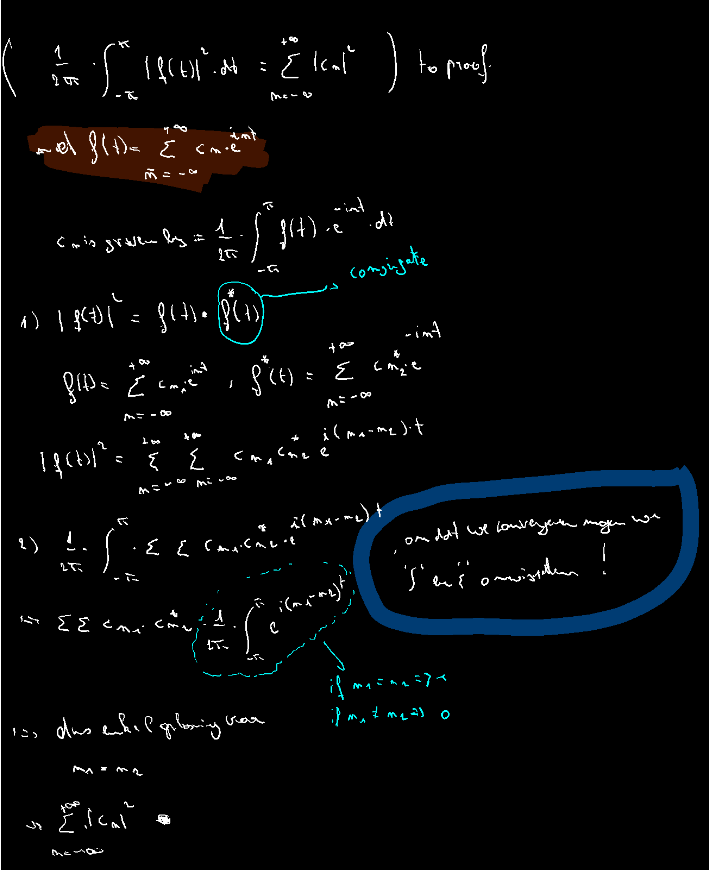 ( 1/2π · ∫_{-π}^{π} |f(t)|² · dt = Σ_{n=-∞}^{+∞} |cn|² ) to proof.
met f(t) = Σ_{n=-∞}^{+∞} cn · e^{int}
cn is given by = 1/2π · ∫_{-π}^{π} f(t) · e^{-int} · dt
conjugate
1) |f(t)|² = f(t) · f*(t)
f(t) = Σ_{n=-∞}^{+∞} cn₁ e^{int} , f*(t) = Σ_{n=-∞}^{+∞} cn₂* · e^{-int}
|f(t)|² = Σ_{n=-∞}^{+∞} Σ_{n=-∞}^{+∞} cn₁ cn₂* e^{i(n₁-n₂)·t}
2) 1/2π · ∫_{-π}^{π} · Σ Σ cn₁ · cn₂* · e^{i(n₁-n₂)t}
, omdat we convergeren mogen we
'∫' en 'Σ' omwisselen !
=> Σ Σ cn₁ · cn₂* · 1/2π · ∫_{-π}^{π} e^{i(n₁-n₂)t}
if n₁ = n₂ => 1
if n₁ ≠ n₂ => 0
=> dus enkel oplossing voor
n₁ = n₂
=> Σ_{n=-∞}^{+∞} |cn|²